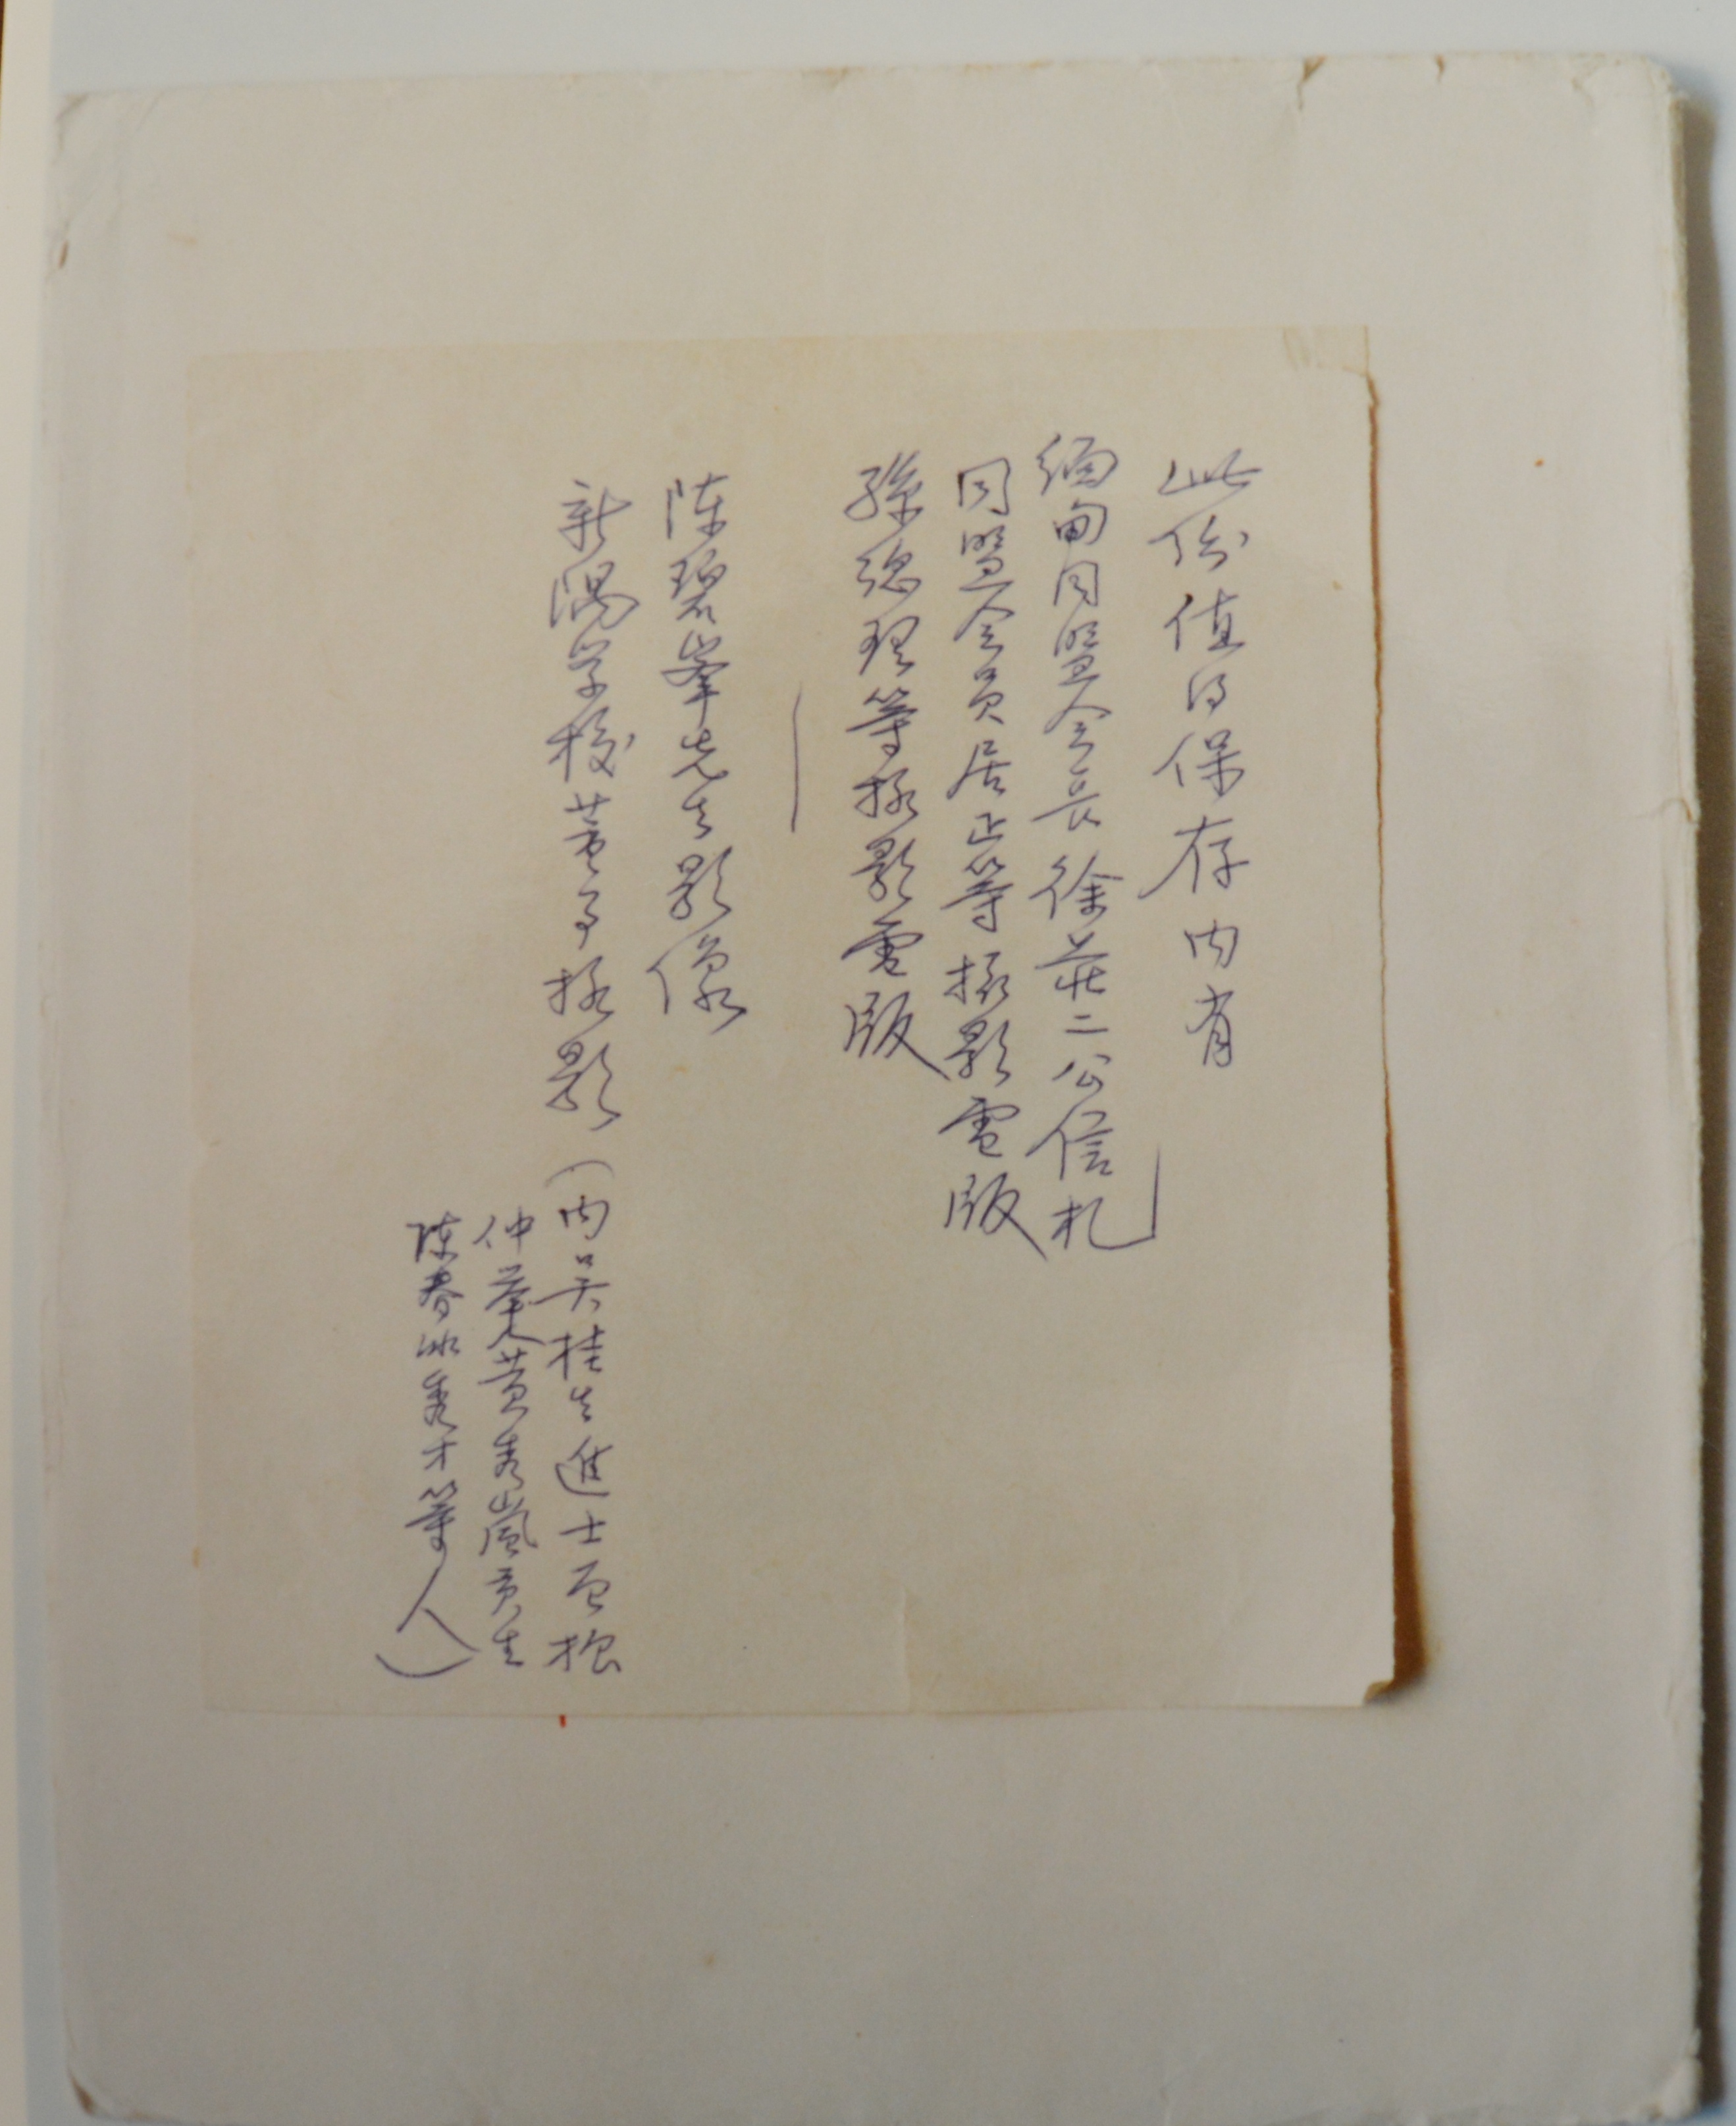 此份值得保存内有
緬甸同盟会長徐莊二公信札
同盟会員居正等攝影電版
孫總理等攝影電版
陈碧峯先生影像
新江学校董事攝影
(内吴桂生進士
仲荃人黄秀嵐貢生
陈春冰秀才等人)